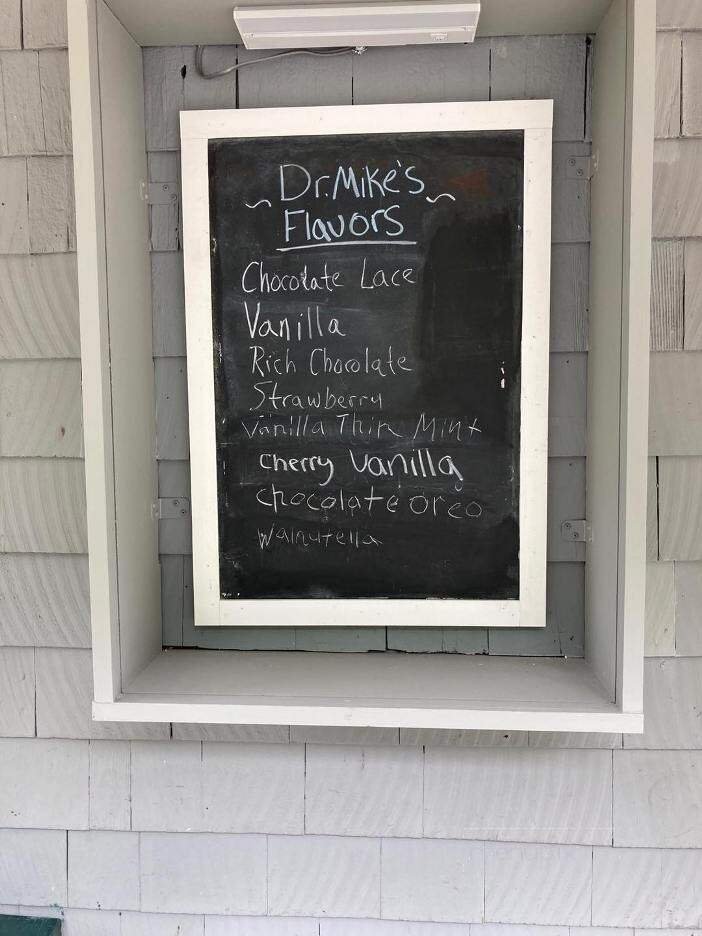 Dr. Mike's
~ Flavors ~
Chocolate Lace
Vanilla
Rich Chocolate
Strawberry
Vanilla Thin Mint
Cherry Vanilla
Chocolate Oreo
Walnutella